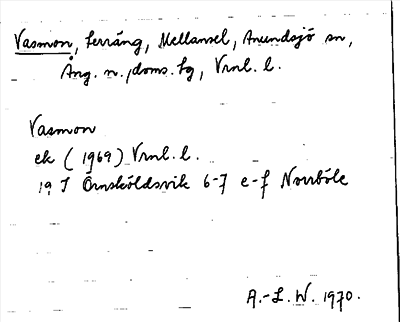 Vasmon, terräng, Mellansel, Anundsjö sn,
Ång. n., doms. sg, Vrnl. l.
Vasmon
ek (1969) Vrnl. l.
19 I Örnsköldsvik 6-7 e-f Norrböle
A.-L. W. 1970.